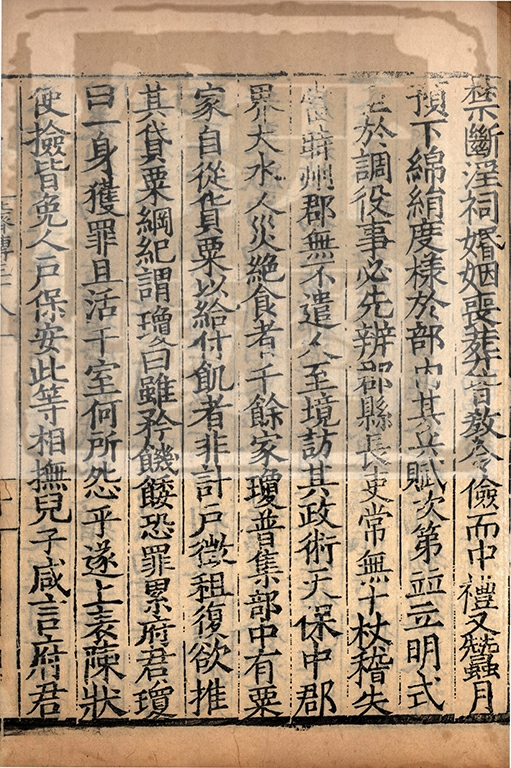 禁斷淫祠婚姻喪葬皆教令儉而中禮又蠶月
預下綿絹度樣於部內其兵賦次第並立明式
至於調役事必先辨郡縣長吏常無十杖稽失
當時州郡無不遣人至境訪其政術大保中郡
界大水人災絕食者千餘家瓊普集部中有粟
家自從貸粟以給付飢者非計戶徵租復欲推
其貸粟綱紀謂瓊曰雖矜饑餒恐罪累府君瓊
曰一身獲罪且活千室何所怨乎遂上表陳狀
使撿皆免人戶保安此等相撫兒子咸言府君